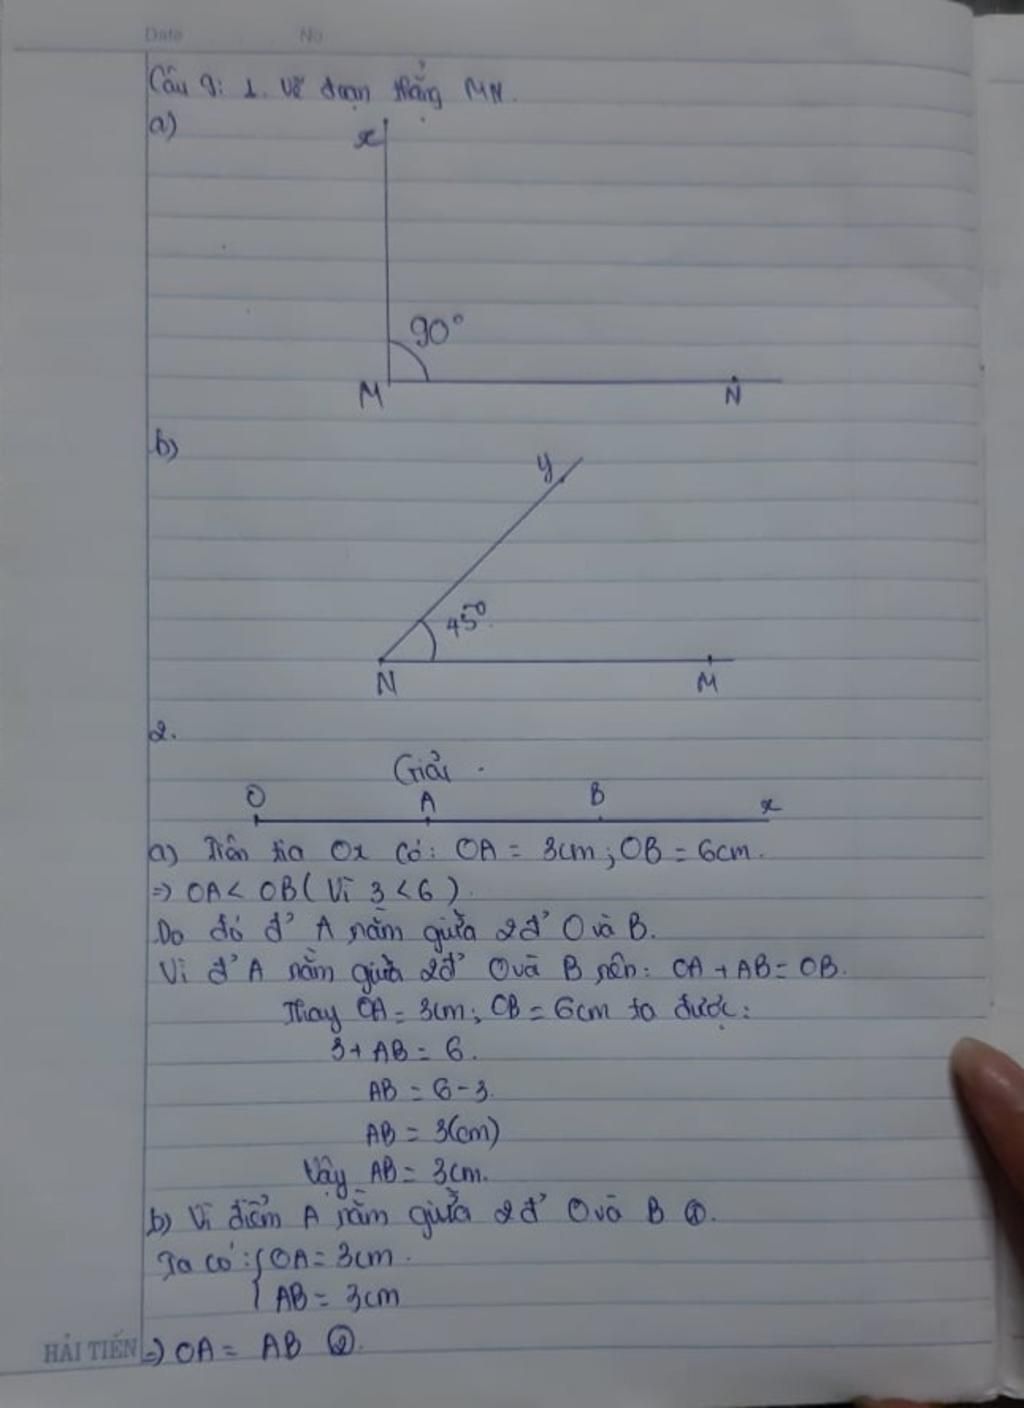 Date No
Câu 9: 1. Vẽ đoạn thẳng MN.
a)
x
90°
M N
b)
y
45°
N M
2.
Giải
O A B x
a) Trên tia Ox có: OA = 3cm; OB = 6cm.
=> OA < OB (Vì 3 < 6).
Do đó đ' A nằm giữa 2đ' O và B.
Vì đ' A nằm giữa 2đ' O và B nên: OA + AB = OB.
Thay OA = 3cm; OB = 6cm ta được:
3 + AB = 6.
AB = 6 - 3.
AB = 3(cm)
Vậy AB = 3cm.
b) Vì điểm A nằm giữa 2đ' O và B ①.
Ta có: { OA = 3cm.
AB = 3cm
HẢI TIẾN => OA = AB ②.